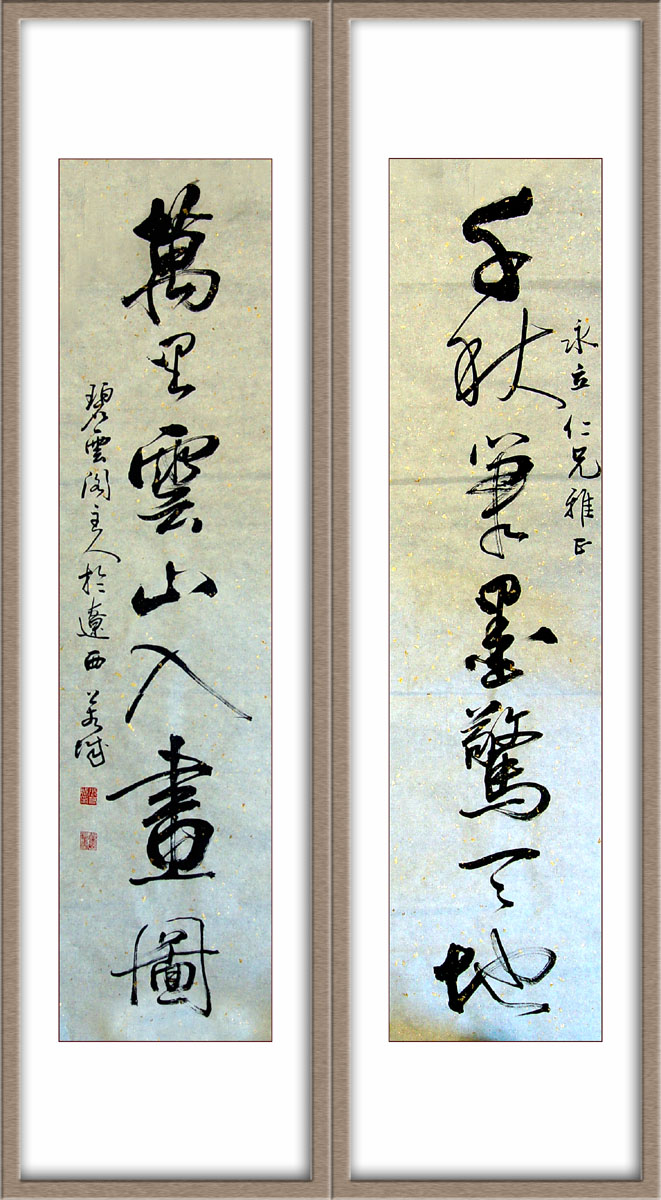 永立仁兄雅正
千秋筆墨驚天地
萬里雲山入畫圖
碧雲阁主人於遼西